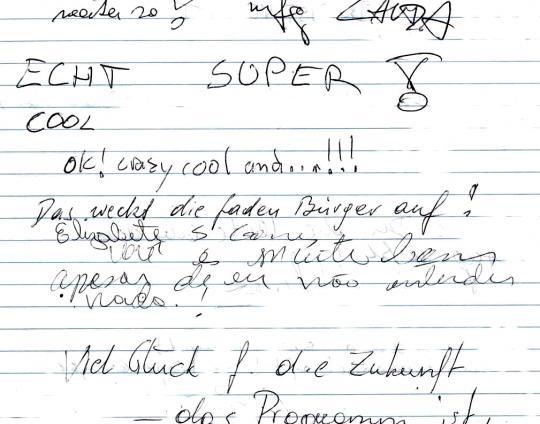 weiter so!
mfg LAUDA
ECHT SUPER!
COOL
OK! crazy cool and...!!!
Das weckt die faden Bürger auf!
Elizabete S
é muito bom
apesar de eu não entender
nada.!
Viel Glück f. die Zukunft
– das Programm ist,